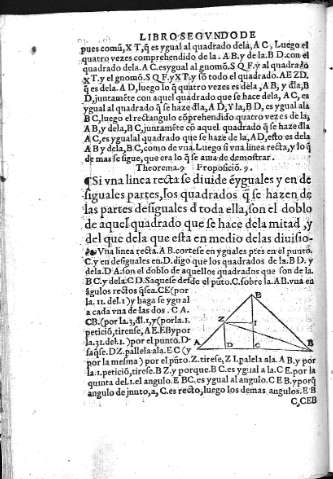 LIBRO SEGVNDO DE
pues comũ, X T, q̃ es ygual al quadrado dela, A C, Luego el
quatro vezes comprehendido de la . A B. y de la. B D. con el
quadrado dela. A C. es ygual al gnomõ. S Q F. y al quadrado
X T. y el gnomõ. S Q F. y X T. y sõ todo el quadrado. A E Z D,
q̃ es dela. A D, luego lo q̃ quatro vezes es dela, A B, y dla, B
D, juntamẽte con aquel quadrado que se haze dela, A C, es
ygual al quadrado q̃ se haze dla, A D, Y la, B D, es ygual ala
B C, luego el rectangulo cõprehendido quatro vezes de la,
A B, y dela, B C, juntamẽte cõ aquel quadrado q̃ se haze dla
A C, es ygual al quadrado que se haze de la, A D, esto es dela
A B y dela, B C, como de vna. Luego si vna linea recta, y lo q̃
de mas se sigue, que era lo q̃ se auia de demostrar.
Theorema. 9 Proposiciõ. 9.
¶ Si vna linea recta se diuide ẽ yguales y en de
siguales partes, los quadrados q̃ se hazen de
las partes desiguales d toda ella, son el doblo
de aquel quadrado que se haze dela mitad, y
del que dela que esta en medio delas diuisio-
Vna linea recta. A B. cortese en yguales ptes en el puntõ.
C. y en desiguales en. D. digo que los quadrados de la. B D. y
dela. D A. son el doblo de aquellos quadrados que son de la.
B C. y dela. C D. Saquese desde el pũto. C. sobre la. A B. vna en
ãgulos rectos q̃ sea. C E (por
la. 11. del. 1) y haga se ygual
a cada vna de las dos . C A.
CB. (por la. 3. dl. 1, y (por la. 1.
peticiõ, tirense, A E. E B y por
la. 31. del. 1.) por el punto. D
saq̃se. D Z. pallela ala. E C (y
por la mesma) por el pũto. Z. tirese, Z I. palela ala. A B, y por
la. 1. peticiõ, tirese. B Z. y porque. B C. es ygual a la. C E. por la
quinta del. 1. el angulo. E BC. es ygual al angulo. C E B. y porq̃
angulo de juuto, a, C. es recto, luego los demas angulos. E B
C, C E B
E
Z
I
A
D
C
B